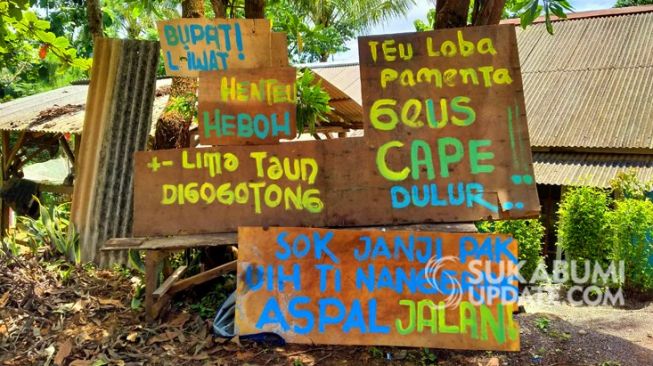 BUPATI!
LIWAT
HENTEU
HEBOH
TEU LOBA
PAMENTA
GEUS
CAPE
DULUR..!!
+- LIMA TAUN
DIGOGOTONG
SOK JANJI PAK
ASPAL JALAN
SUKABUMI
UPDATE.COM